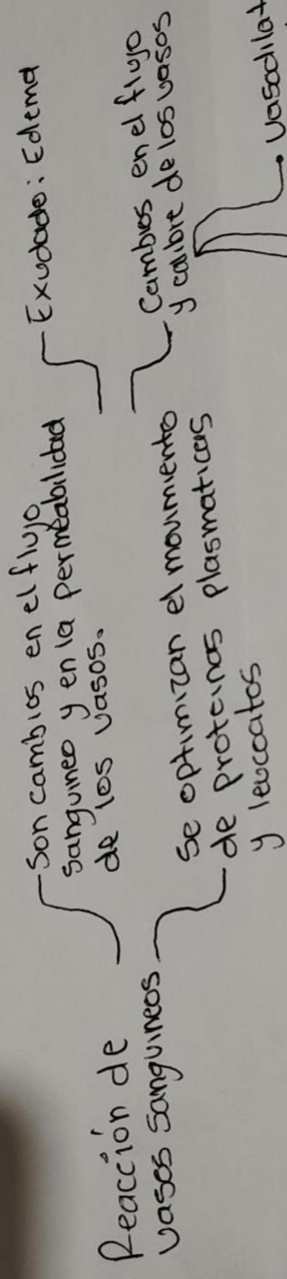 Reacción de
vasos sanguineos
Son cambios en el flujo
sanguineo y en la permeabilidad
de los vasos.
Se optimizan el movimiento
de proteinas plasmaticas
y leucoatos
Exudado: Edema
Cambios en el flujo
y calibre de los vasos
• vasodilat